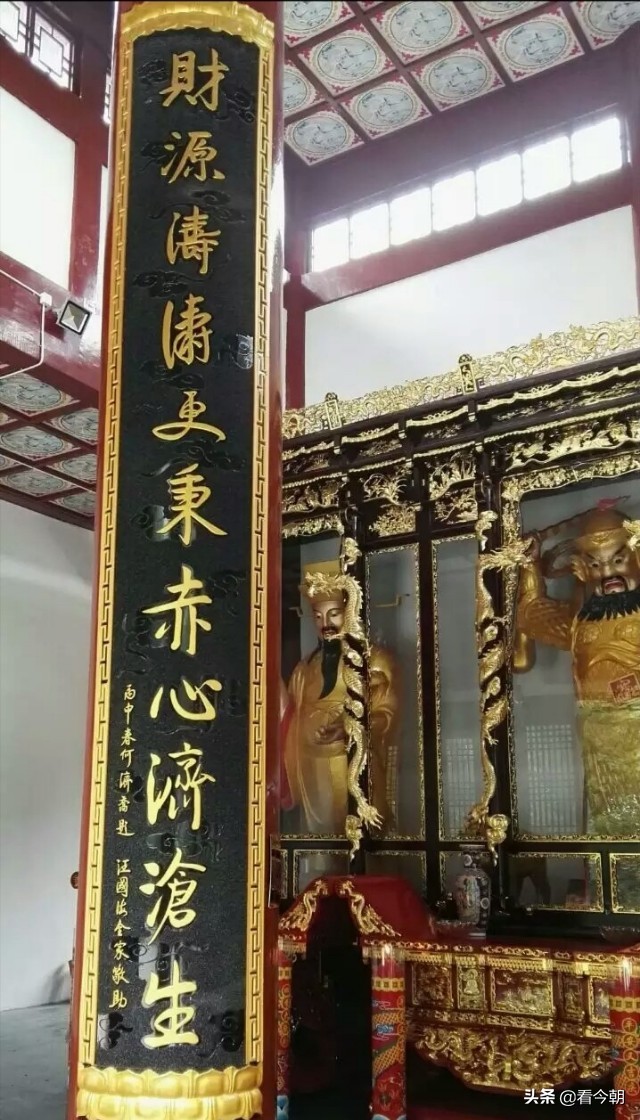 財源濤濤更秉赤心濟滄生
丙申春何濟喬题
汪國海全家敬助
头条 @看今朝